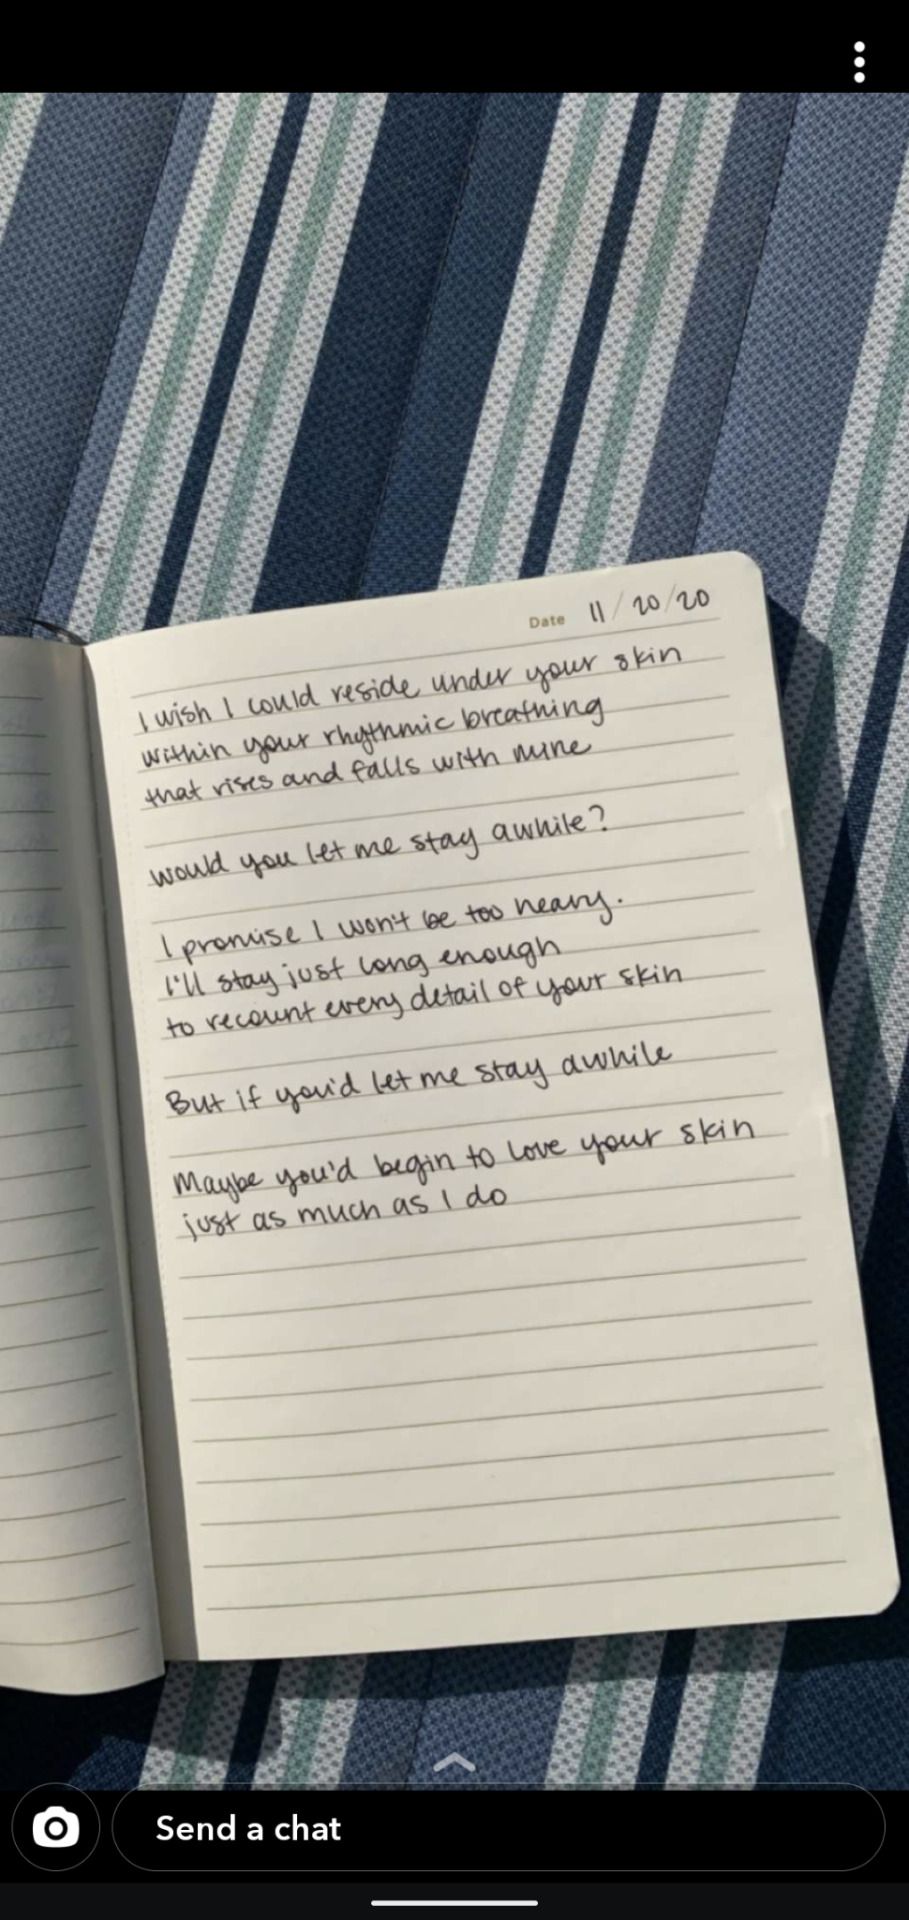 Date 11/20/20
I wish I could reside under your skin
within your rhythmic breathing
that rises and falls with mine
would you let me stay awhile?
I promise I won't be too heavy.
I'll stay just long enough
to recount every detail of your skin
But if you'd let me stay awhile
Maybe you'd begin to love your skin
just as much as I do
Send a chat